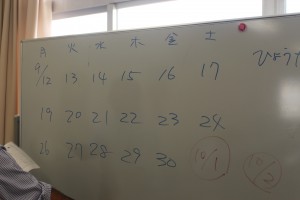 月 火 水 木 金 土
9/12 13 14 15 16 17
19 20 21 22 23 24
26 27 28 29 30 10/1 10/2